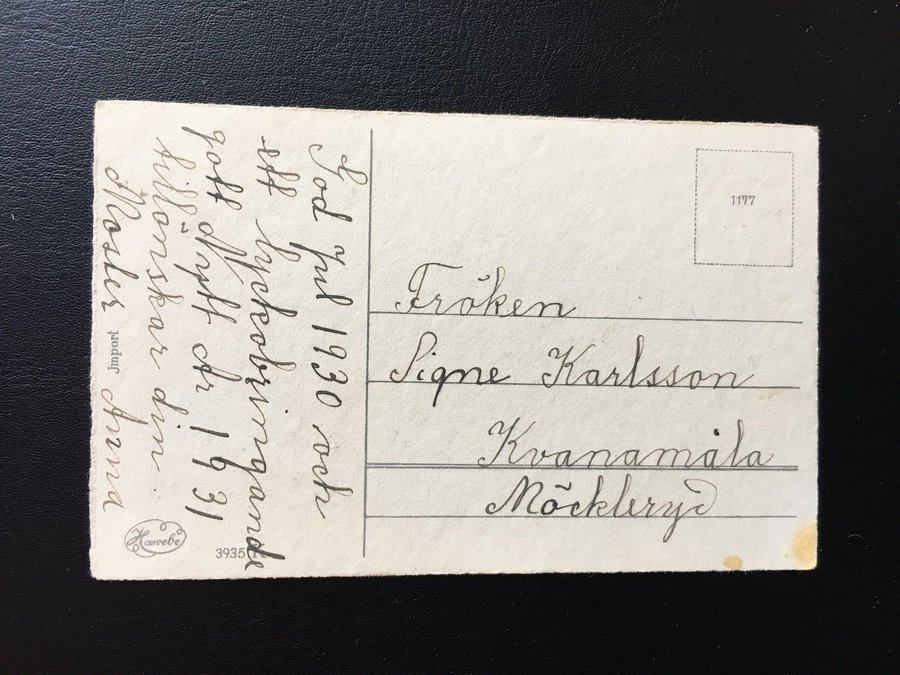 God Jul 1930 och
ett lyckobringande
gott Nytt År 1931
tillönskar din
Moster Anna
Import
Hawebe
3935
1177
Fröken
Signe Karlsson
Kvanamåla
Möckleryd